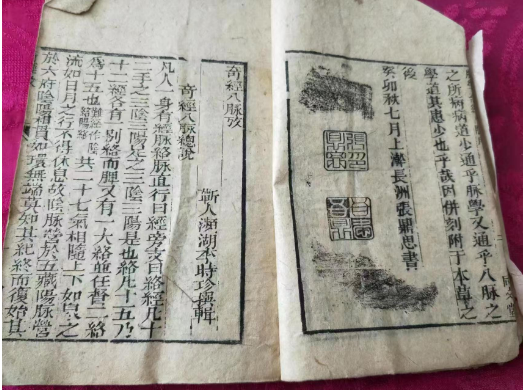 之所病病道少通乎脈學又通乎八脈之
學道其患少也乎哉因併刻附于本草之
後
癸卯秋七月上澣長洲張鼎思書
奇經八脉攷
蘄人瀕湖李時珍撰輯
奇經八脉總說
凡人一身有經脉絡脉直行曰經旁支曰絡經凡十
二手之三陰三陽足之三陰三陽是也絡凡十五乃
十二經各有一別絡而脾又有一大絡並任督二絡
爲十五也難經作陰絡陽絡共二十七氣相隨上下如泉之
流如日月之行不得休息故陰脉營於五臟陽脉營
於六府陰陽相貫如環無端莫知其紀終而復始其